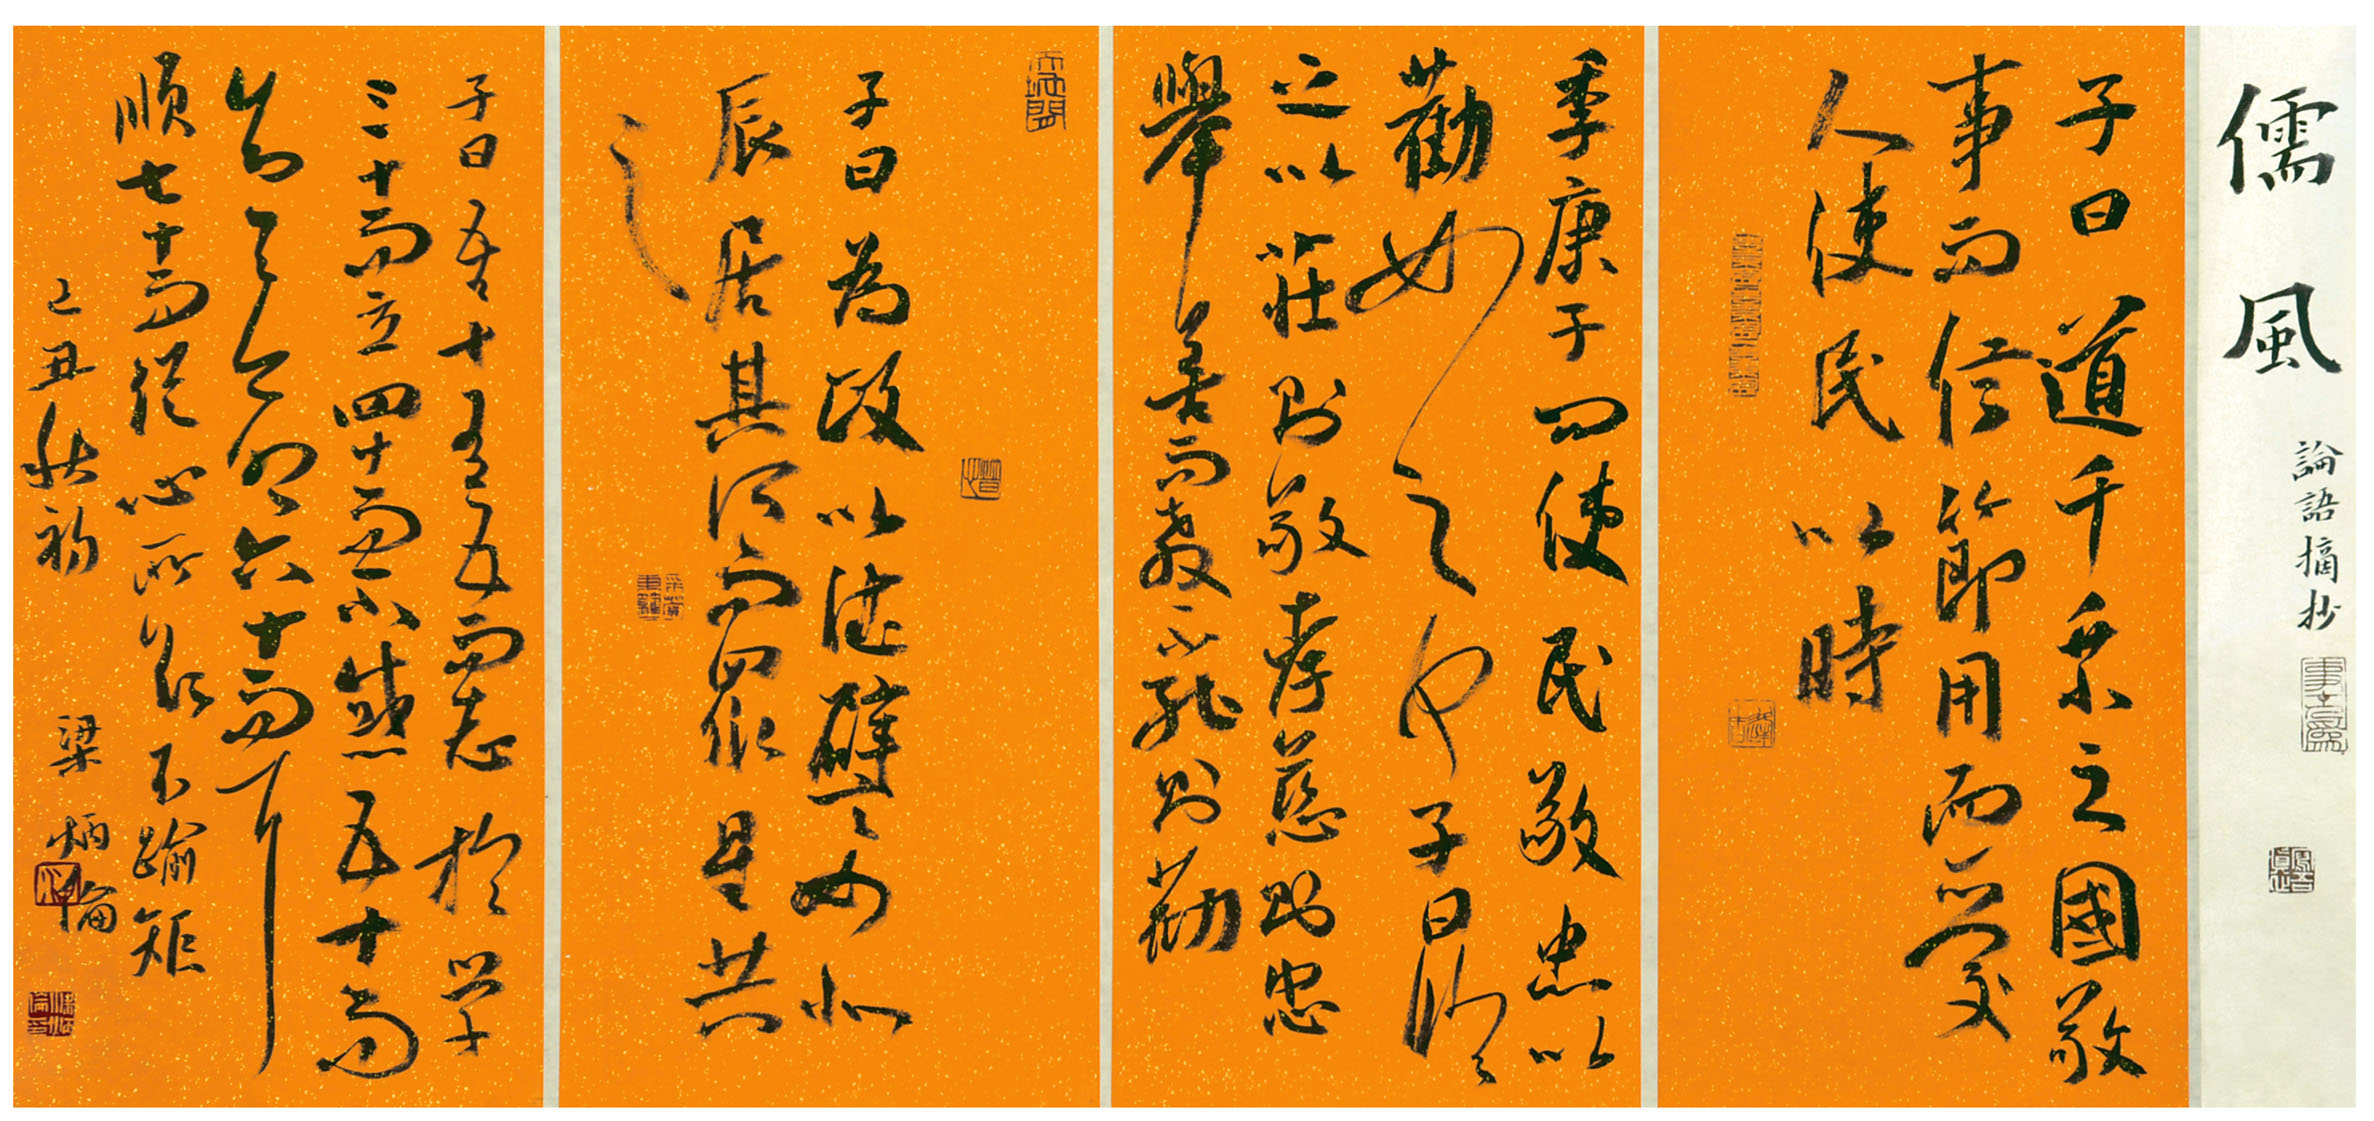 儒風
論語摘抄
子曰道千乘之國敬
事而信節用而愛
人使民以時
季康子問使民敬忠以
勸如之何子曰臨
之以莊則敬孝慈則忠
舉善而教不能則勸
子曰為政以德譬如北
辰居其所而眾星共
之
子曰吾十有五而志於学
三十而立四十而不惑五十而
知天命六十而耳
順七十而從心所欲不踰矩
己丑秋初 梁炳倫